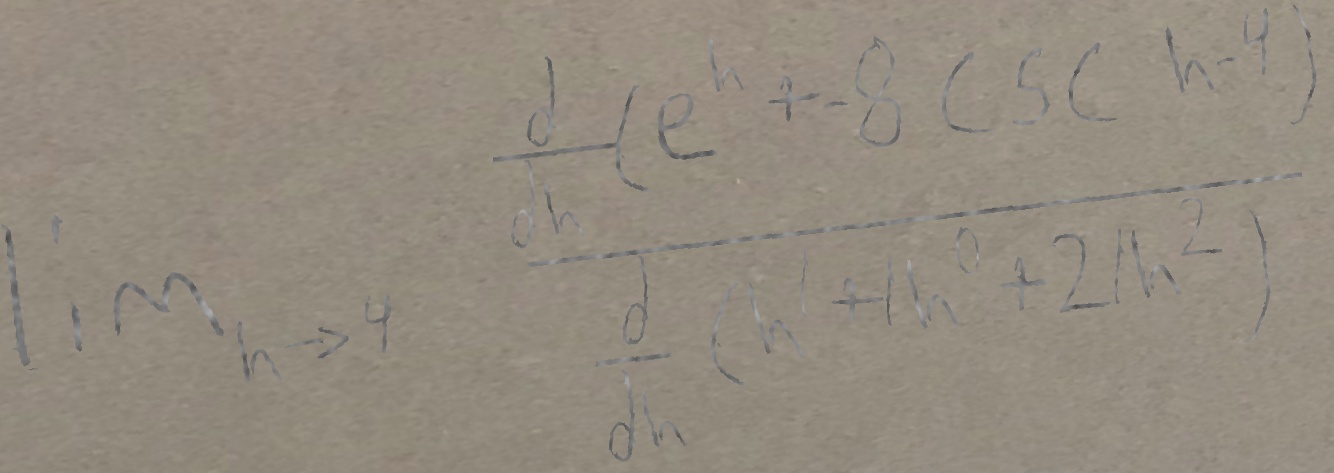 \lim_{h \to 4} \frac{\frac{d}{dh}(e^{h} + -8 \csc h^{-4})}{\frac{d}{dh}(h^{1} + 1h^{0} + 21h^{2})}